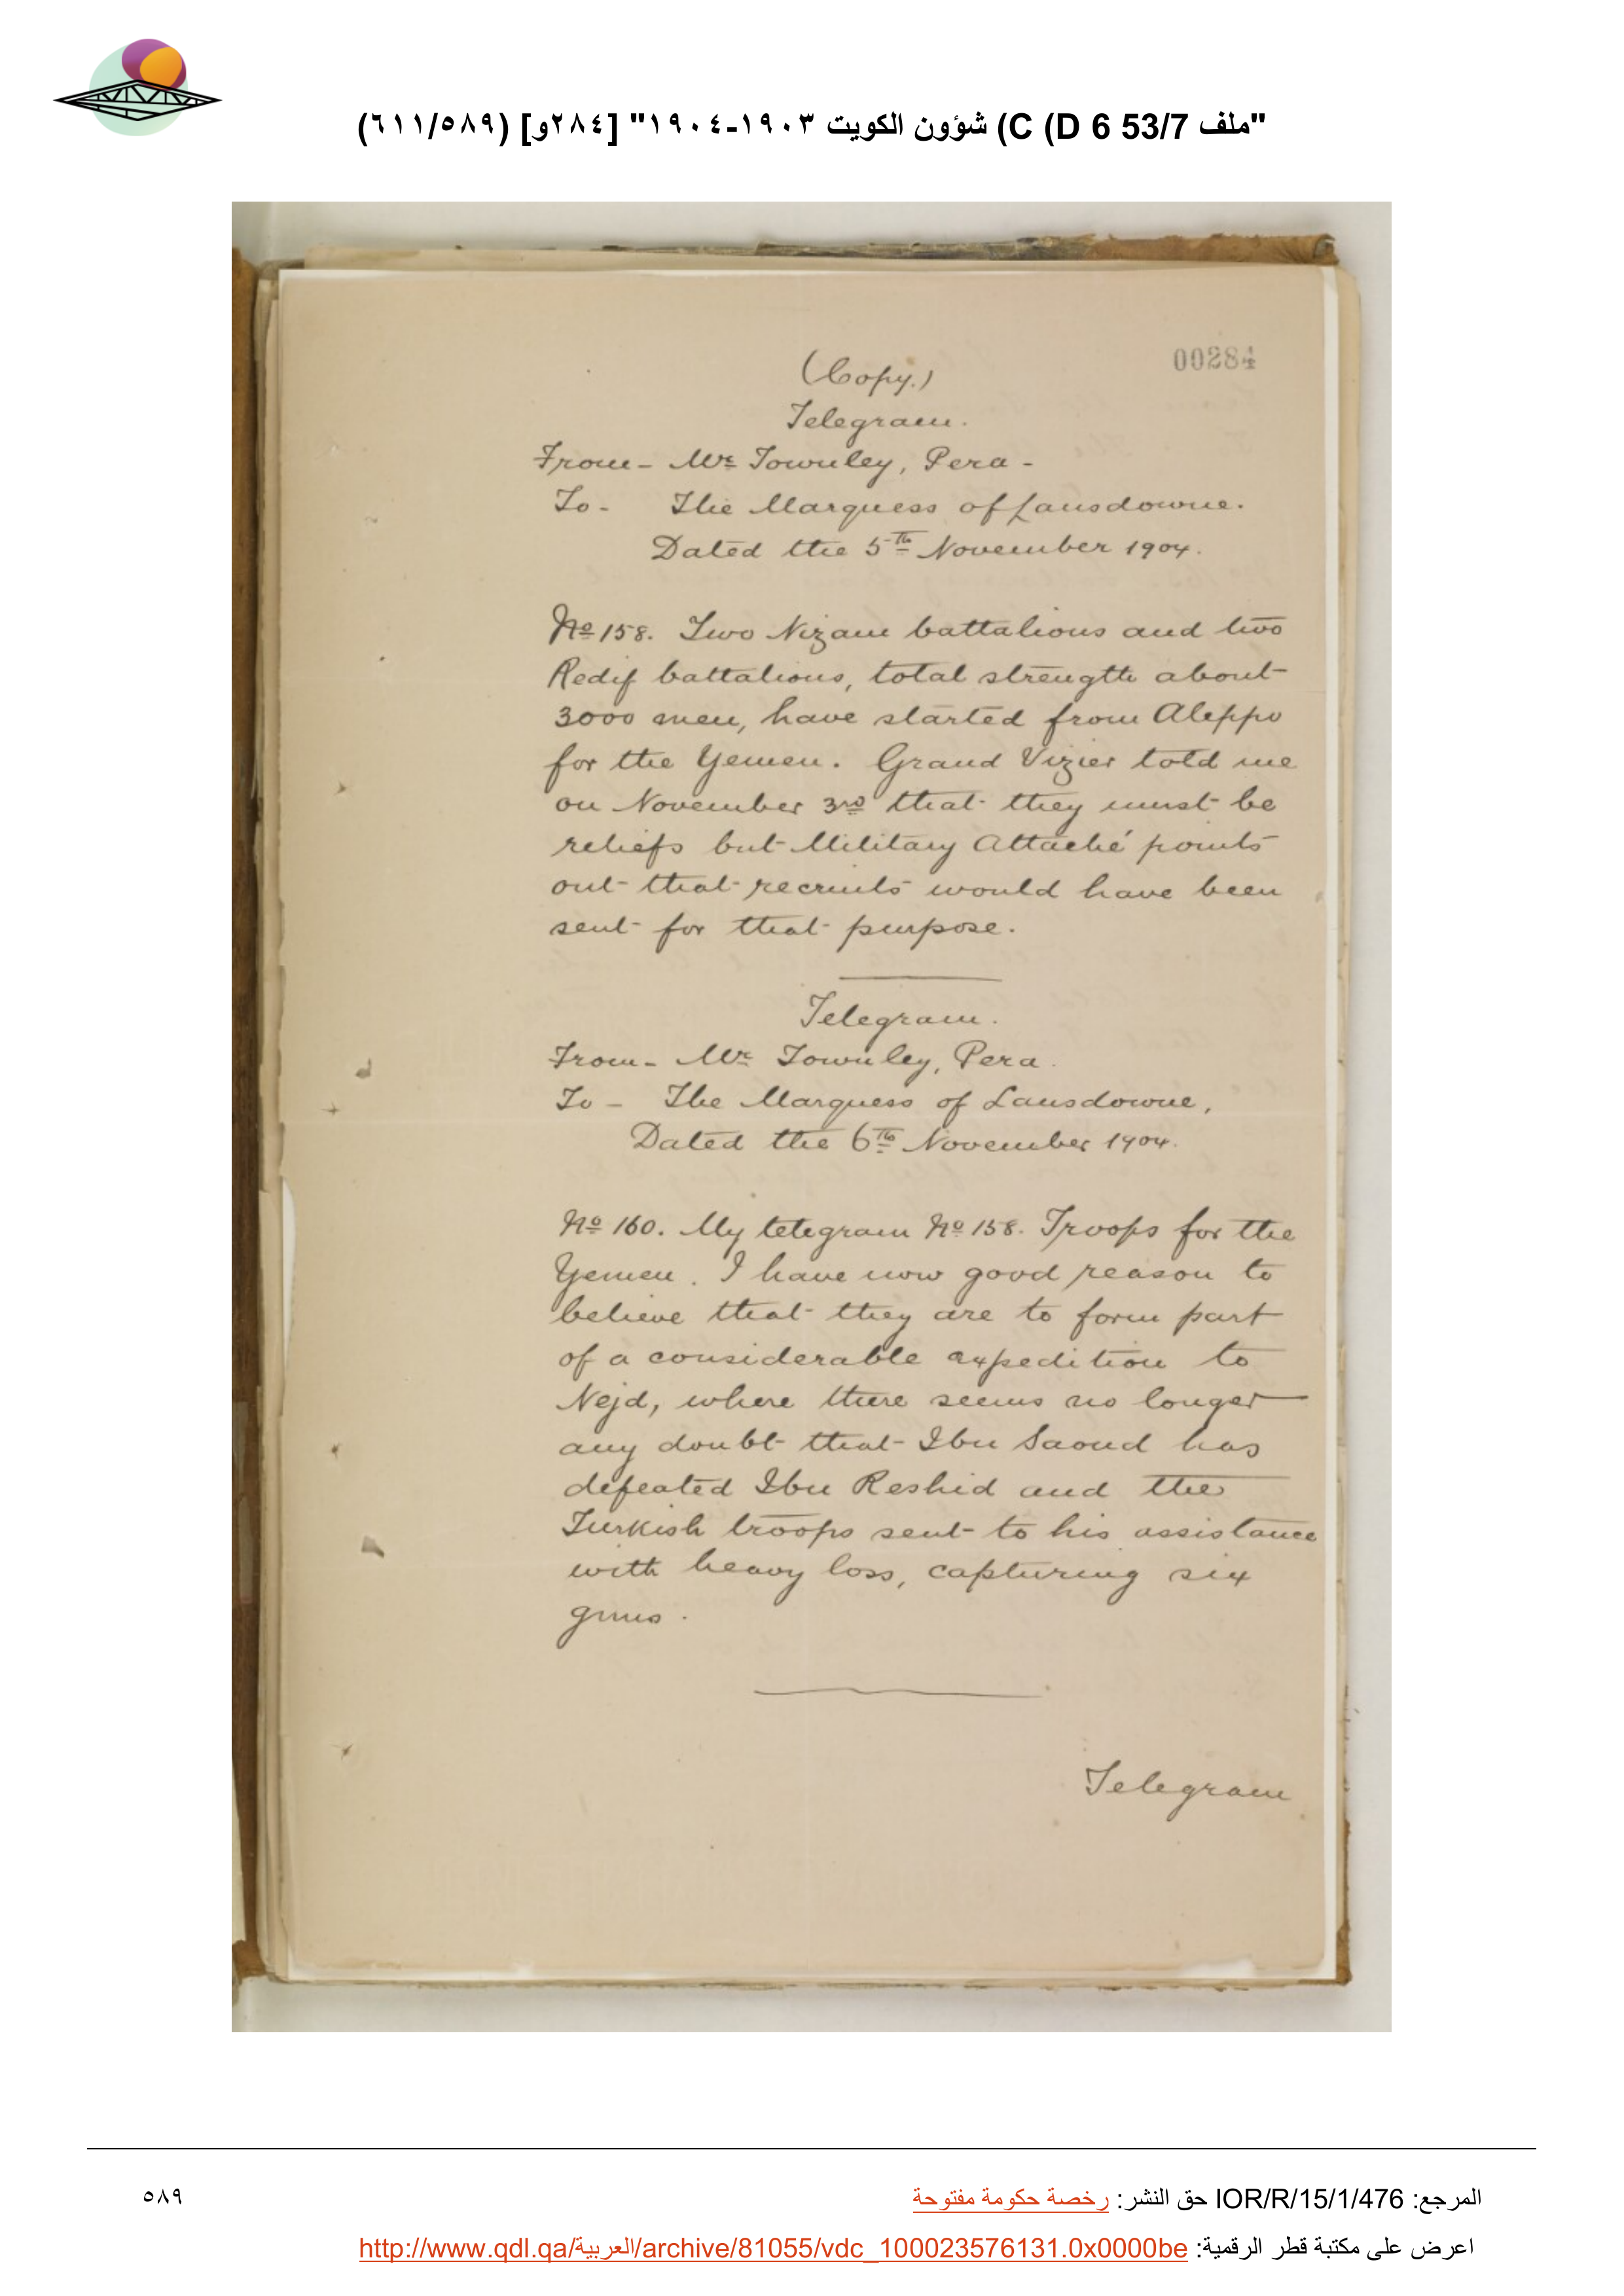 "ملف 53/7 C (D 6) شؤون الكويت ١٩٠٣-١٩٠٤" [٢٨٤و] (٦١١/٥٨٩)
00284
(Copy.)
Telegram.
From - Mr Townley, Pera -
To - The Marquess of Lansdowne.
Dated the 5th November 1904.
No 158. Two Nizam battalions and two
Redif battalions, total strength about
3000 men, have started from Aleppo
for the Yemen. Grand Vizier told me
on November 3rd that they must be
reliefs but Military Attaché points
out that recruits would have been
sent for that purpose.
Telegram.
From - Mr Townley, Pera.
To - The Marquess of Lansdowne,
Dated the 6th November 1904.
No 160. My telegram No 158. Troops for the
Yemen. I have now good reason to
believe that they are to form part
of a considerable expedition to
Nejd, where there seems no longer
any doubt that Ibn Saoud has
defeated Ibn Reshid and the
Turkish troops sent to his assistance
with heavy loss, capturing six
guns.
Telegram
المرجع: IOR/R/15/1/476 حق النشر: رخصة حكومة مفتوحة
٥٨٩
اعرض على مكتبة قطر الرقمية: http://www.qdl.qa/العربية/archive/81055/vdc_100023576131.0x0000be